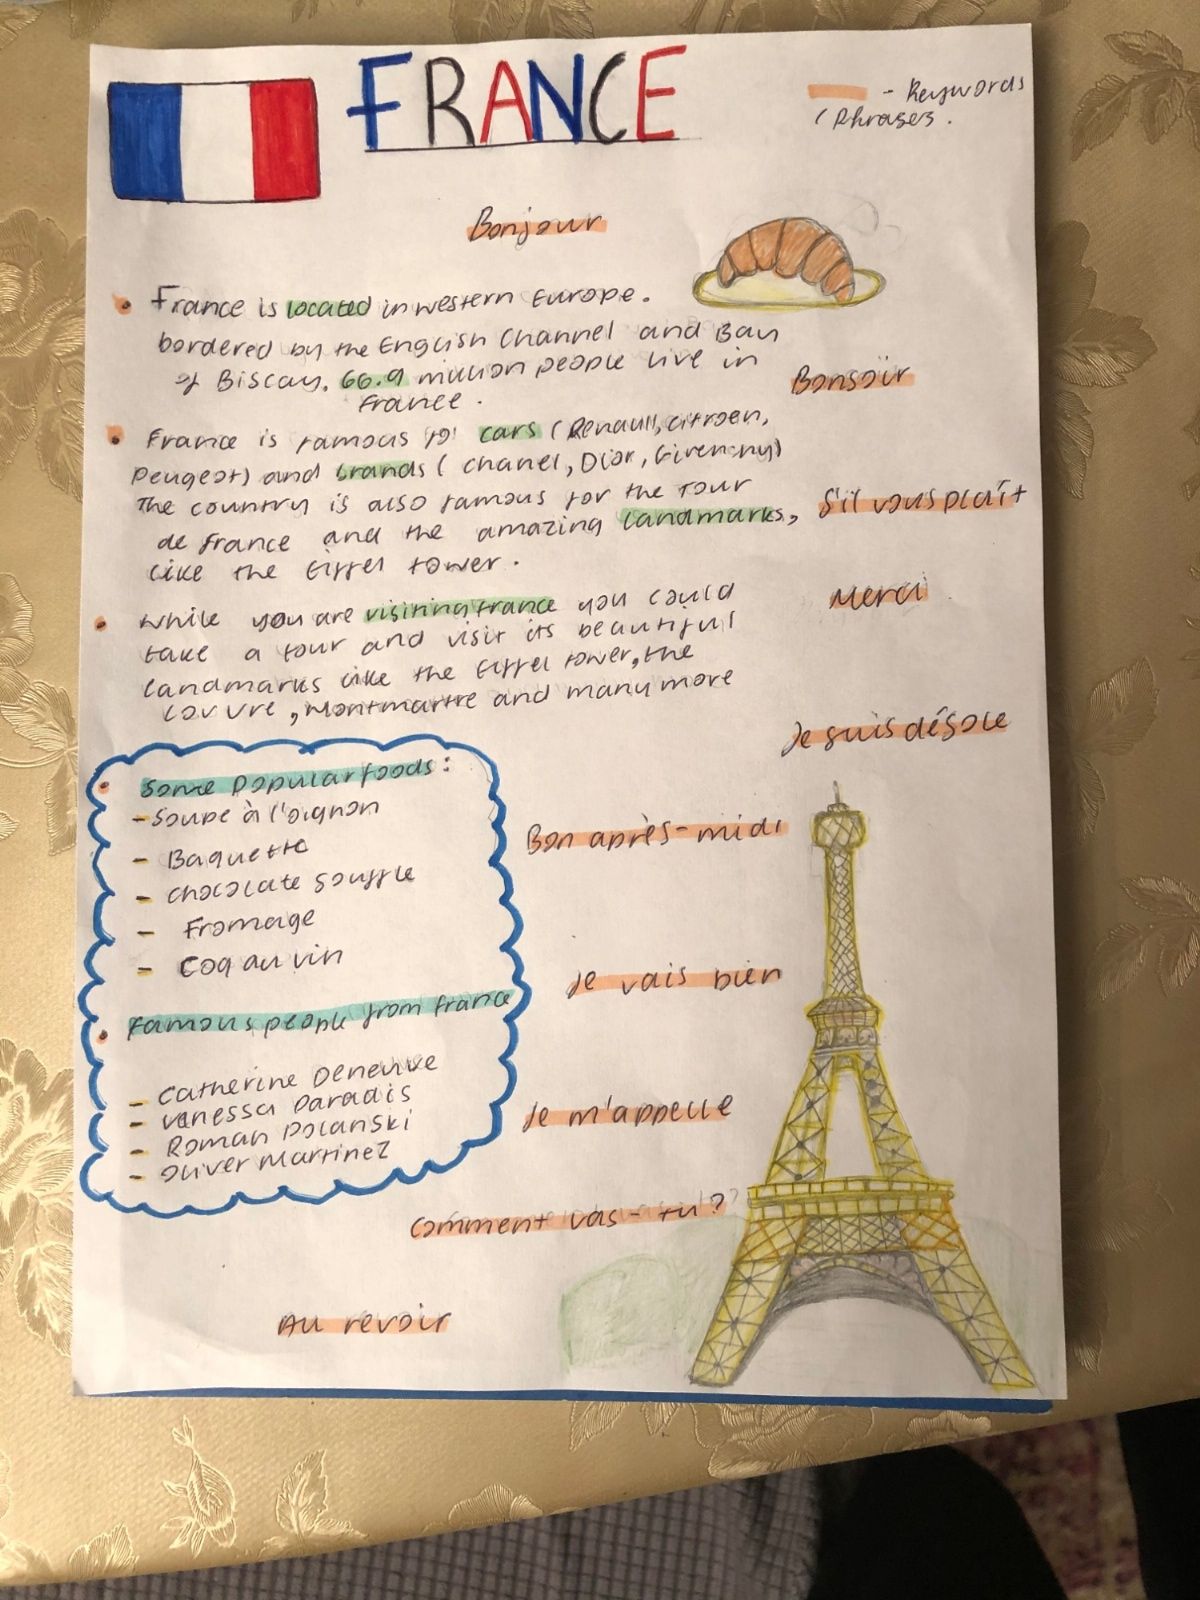 FRANCE
- Keywords
/ Phrases.
Bonjour
France is located in western Europe.
bordered by the English Channel and Bay
of Biscay. 66.9 million people live in
France.
Bonsoïr
France is famous for cars (Renault, citroen,
Peugeot) and brands (chanel, Dior, Givenchy)
The country is also famous for the Tour
de france and the amazing landmarks,
like the Eiffel tower.
S'il vous plaît
Merci
While you are visiting france you could
take a tour and visit its beautiful
landmarks like the Eiffel tower, the
Louvre, Montmartre and many more
Je suis désole
Some Popular foods:
- Soupe à l'oignon
- Baguette
- chocolate souffle
- Fromage
- Coq au vin
Famous people from france
- Catherine Deneuve
- Vanessa Paradis
- Roman Polanski
- Oliver Martinez
Bon après-midi
Je vais bien
Je m'appelle
Comment vas-tu?
Au revoir